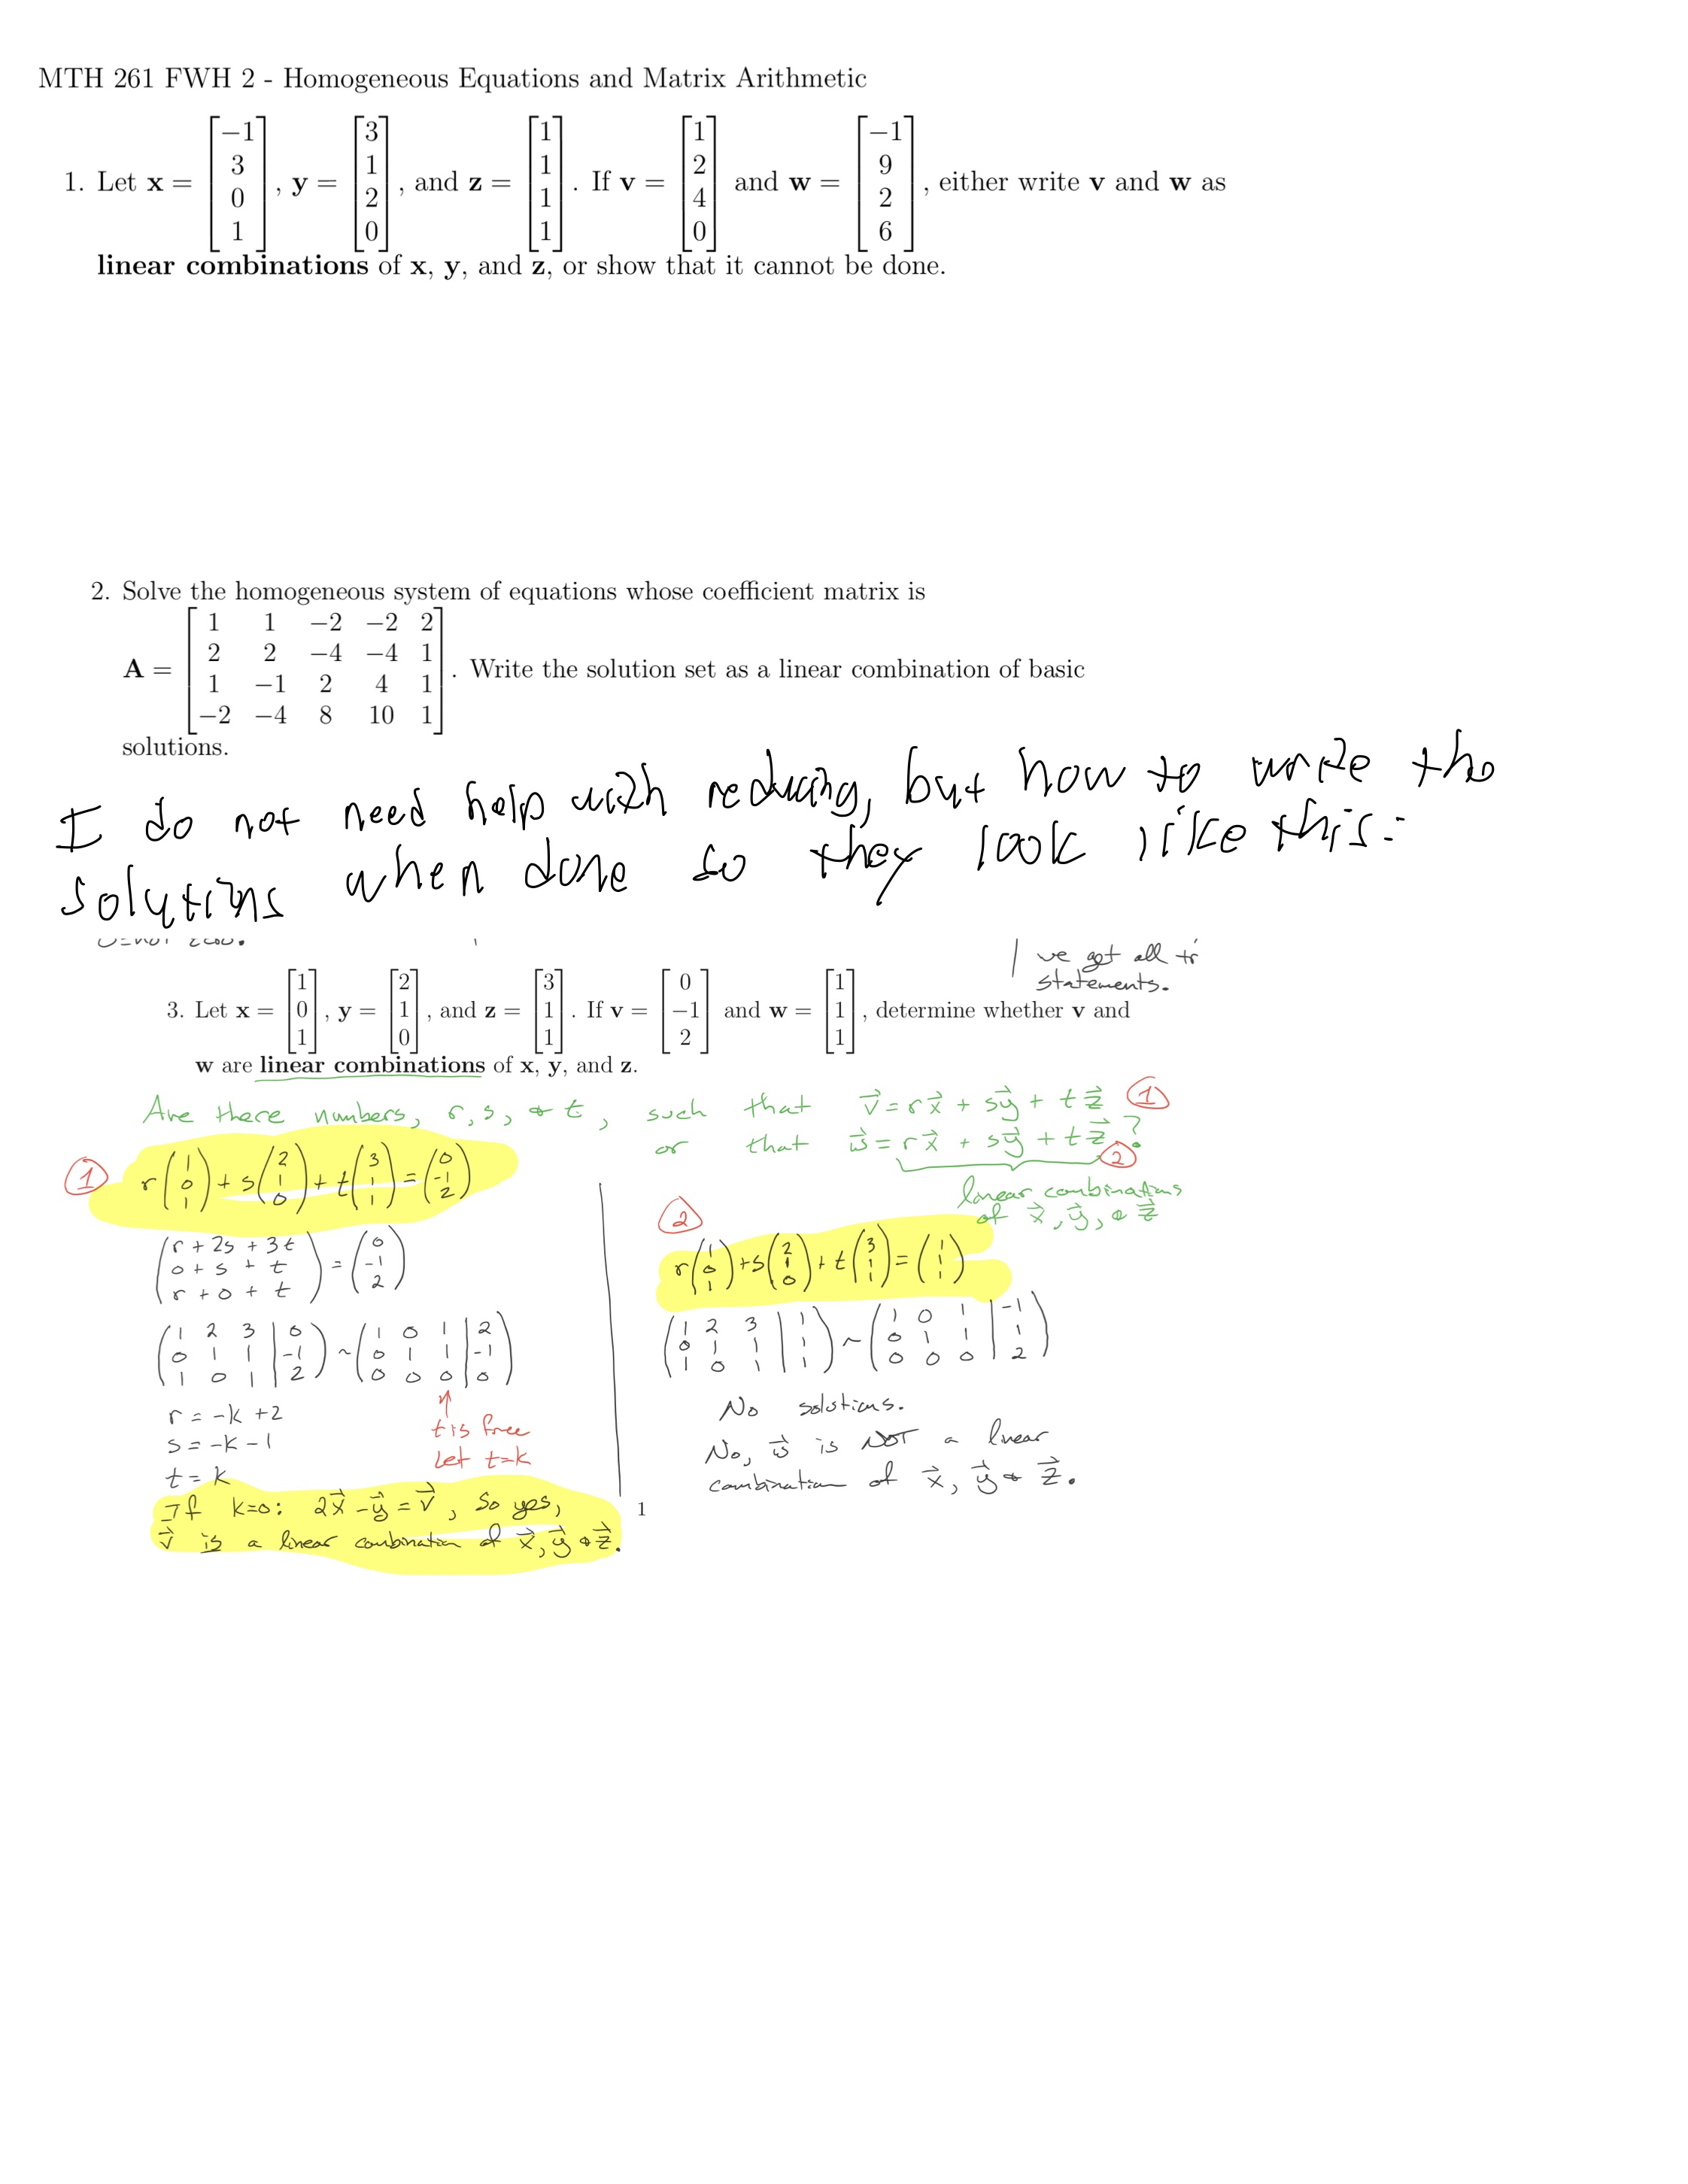 MTH 261 FWH 2 - Homogeneous Equations and Matrix Arithmetic
1. Let x = [−1 3 0 1], y = [3 1 2 0], and z = [1 1 1 1]. If v = [1 2 4 0] and w = [−1 9 2 6], either write v and w as
linear combinations of x, y, and z, or show that it cannot be done.
2. Solve the homogeneous system of equations whose coefficient matrix is
A = [1 1 −2 −2 2
2 2 −4 −4 1
1 −1 2 4 1
−2 −4 8 10 1]. Write the solution set as a linear combination of basic
solutions.
I do not need help with reducing, but how to write the
solutions when done so they look like this:
we got all
statements.
3. Let x = [1 0 1], y = [2 1 0], and z = [3 1 1]. If v = [0 −1 2] and w = [1 1 1], determine whether v and
w are linear combinations of x, y, and z.
Are there numbers, r, s, & t, such that v⃗ = rx⃗ + sy⃗ + tz⃗ ①
or that w⃗ = rx⃗ + sy⃗ + tz⃗ ? ②
linear combinations
of x⃗, y⃗, & z⃗
① r(1 0 1) + s(2 1 0) + t(3 1 1) = (0 -1 2)
(r + 2s + 3t
0 + s + t
r + 0 + t) = (0 -1 2)
(1 2 3 | 0
0 1 1 | -1
1 0 1 | 2) ~ (1 0 1 | 2
0 1 1 | -1
0 0 0 | 0)
r = -k + 2
s = -k - 1
t = k
t is free
Let t=k
If k=0: 2x⃗ - y⃗ = v⃗, So yes,
v⃗ is a linear combination of x⃗, y⃗ & z⃗.
②
r(1 0 1) + s(2 1 0) + t(3 1 1) = (1 1 1)
(1 2 3 | 1
0 1 1 | 1
1 0 1 | 1) ~ (1 0 1 | -1
0 1 1 | 1
0 0 0 | 2)
No solutions.
No, w⃗ is NOT a linear
combination of x⃗, y⃗ & z⃗.
1